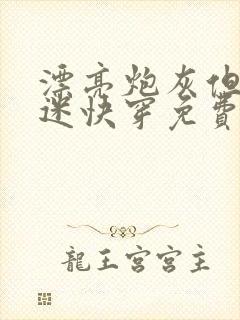 漂亮炮灰但
迷快穿免費
龍王宮宮主